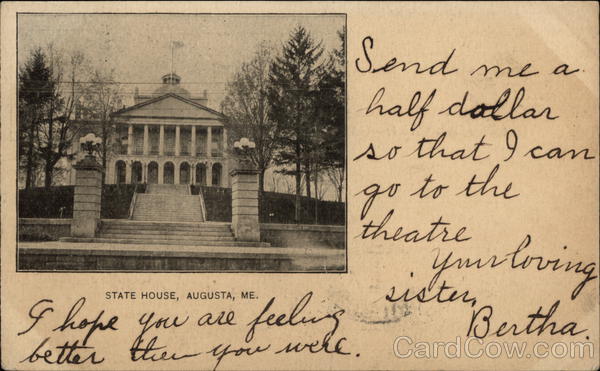 Send me a
half dollar
so that I can
go to the
theatre
Your loving
sister,
Bertha.
STATE HOUSE, AUGUSTA, ME.
I hope you are feeling
better then you were.
CardCow.com